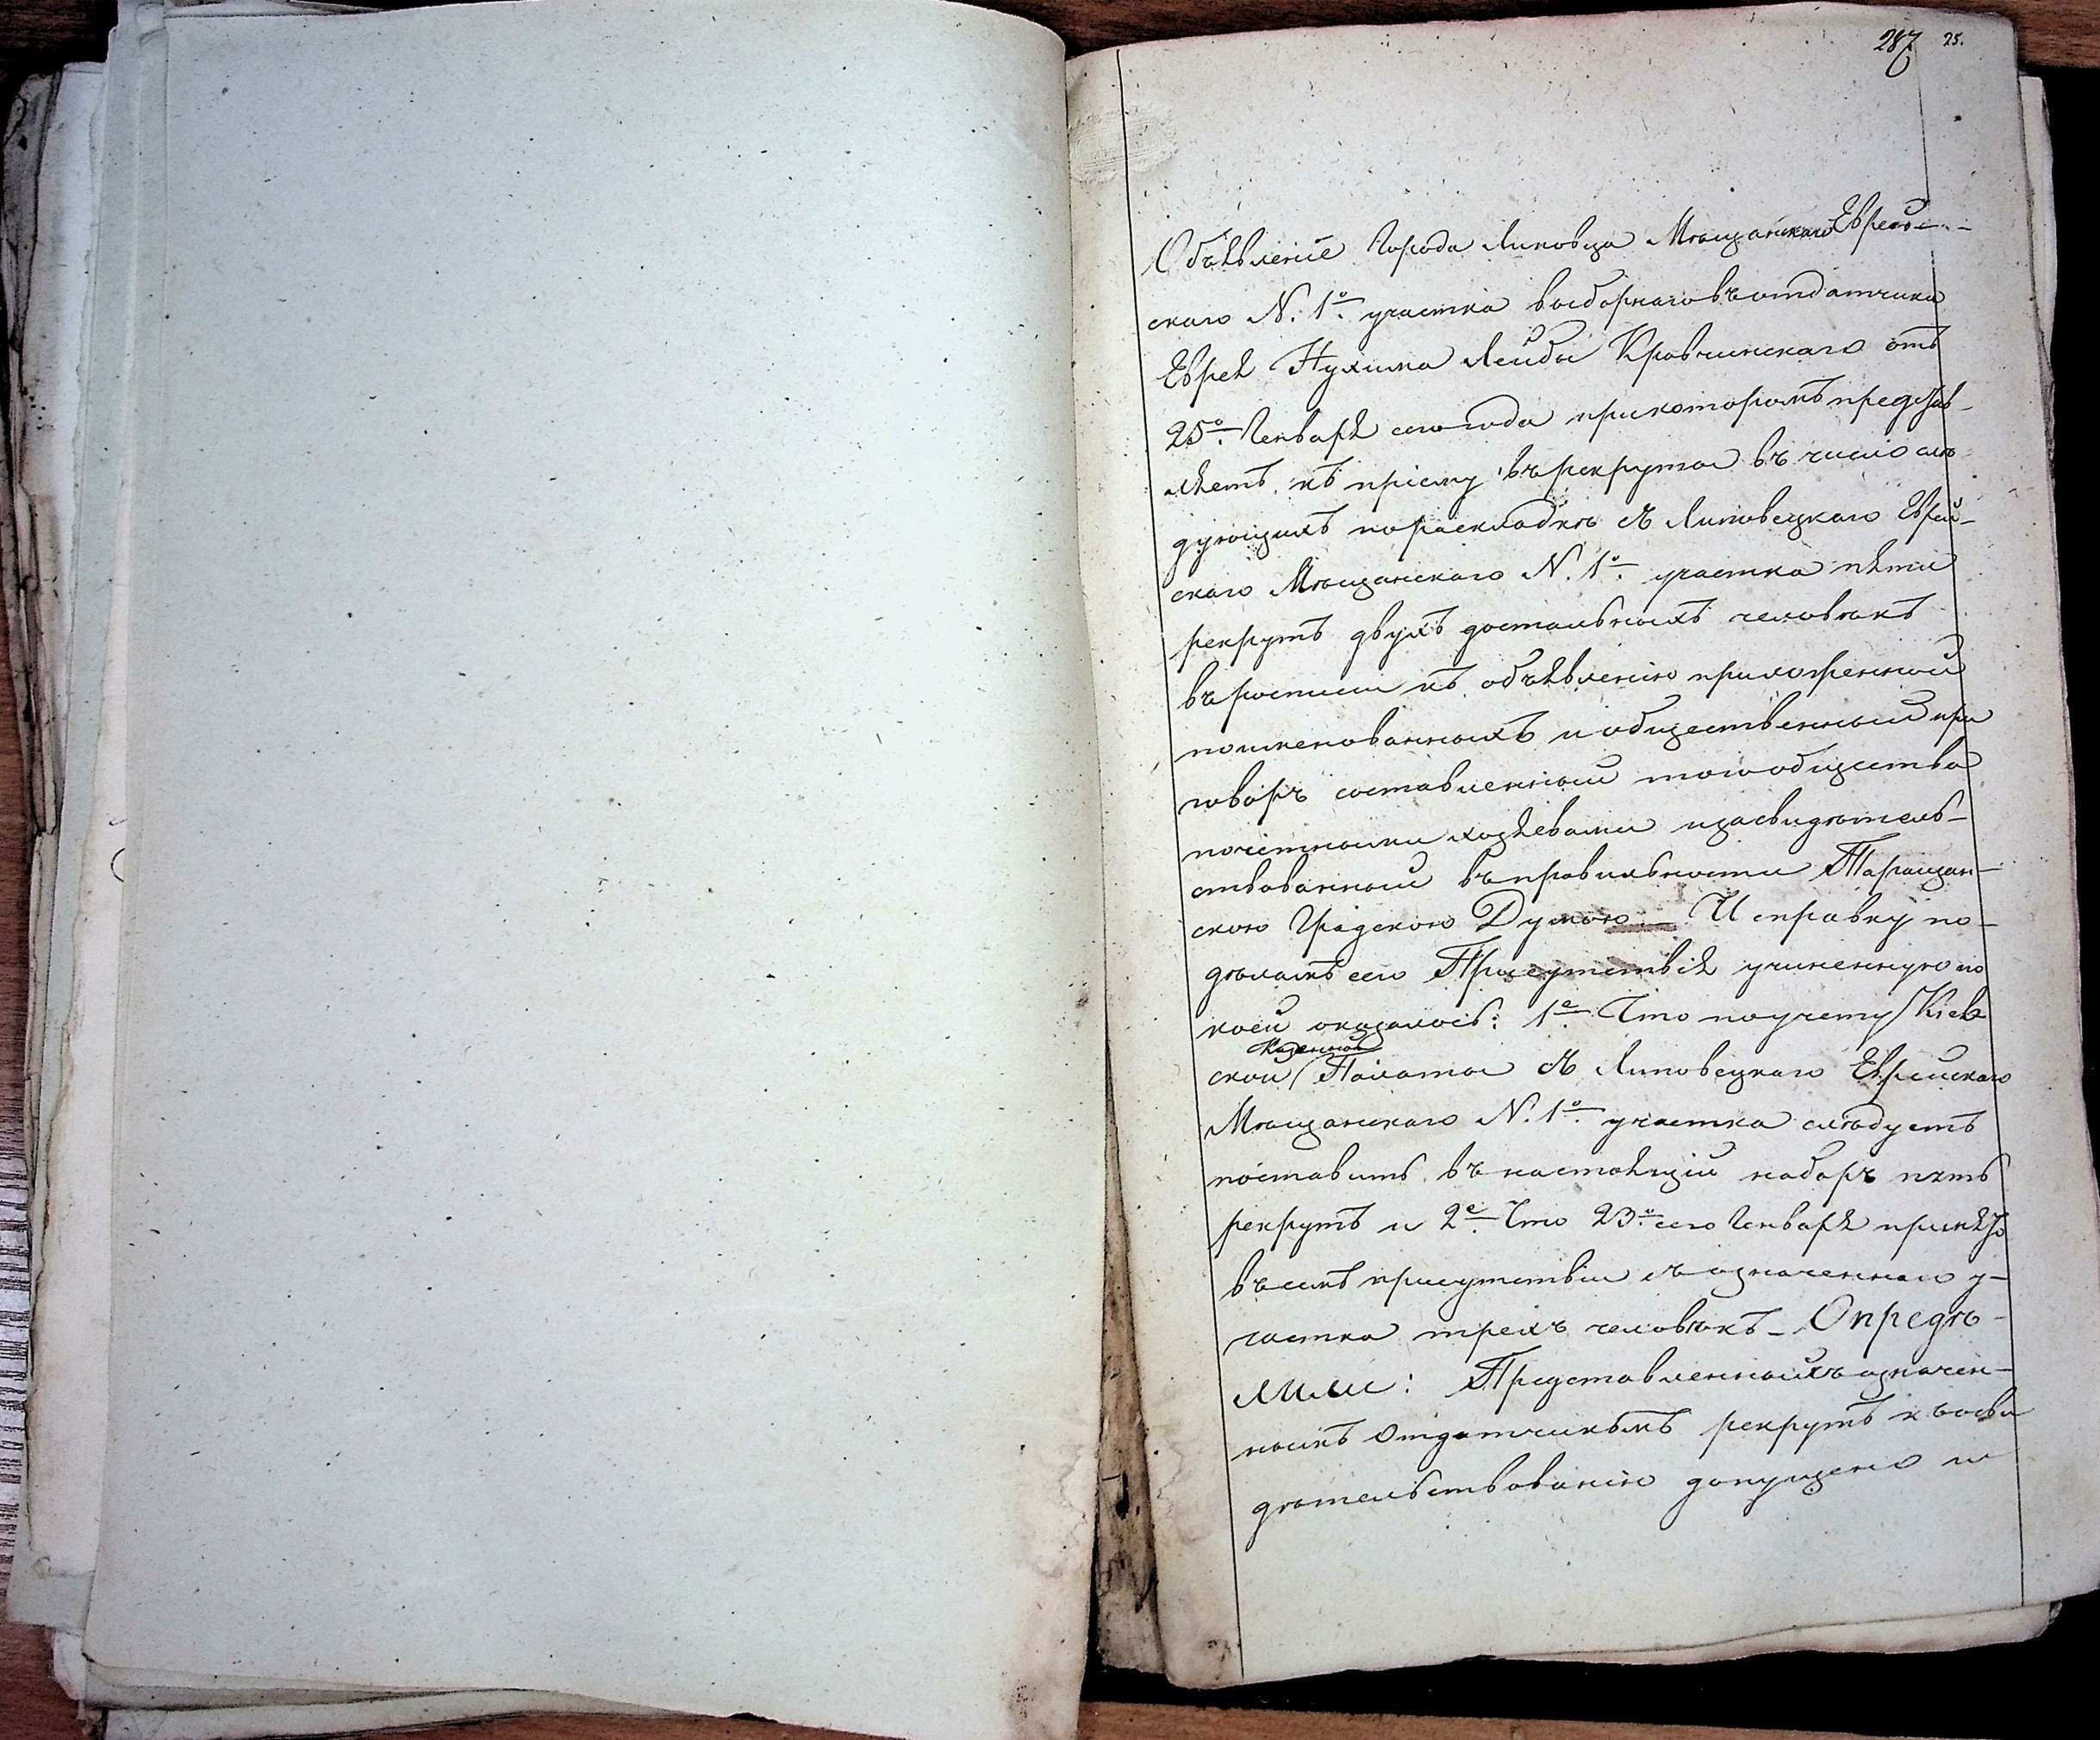 287 25.
Объявленіе Города Липовца Мѣщанскаго Еврей-
скаго N. 1º участка выборнаго въ отдатчики
Еврея Нухима Лейбы Кравчинскаго отъ
25º Генваря сего года при которомъ представ-
ляетъ къ пріему въ рекруты въ число слѣ
дующихъ по раскладкѣ съ Липовецкаго Еврей-
скаго Мѣщанскаго N. 1º участка пяти
рекрутъ двухъ достальныхъ человѣкъ
въ росписи къ объявленію приложенной
поименованныхъ и общественный при
говоръ составленный того общества
почетными хозяевами и засвидѣтель-
ствованный въ правильности Таращан-
скою Градскою Думою. — И справку по-
дѣламъ сего Присутствія учиненную по
коей оказалось: 1е Что по учету Кіев
ской Казенной Палаты съ Липовецкаго Еврейскаго
Мѣщанскаго N. 1º участка слѣдуетъ
поставить въ настоящій наборъ пять
рекрутъ и 2е Что 23º сего Генваря принято
въ семъ присутствіи съ означеннаго у-
частка трехъ человѣкъ — Опредѣ-
лили: Представленныхъ означен-
нымъ Отдатчикомъ рекрутъ къ осви
дѣтельствованію допущено и